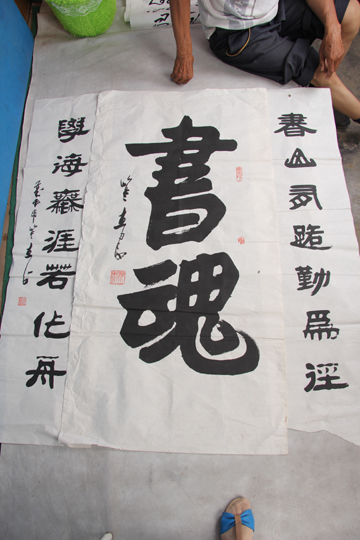 書山有路勤為徑
書魂
學海無涯苦作舟